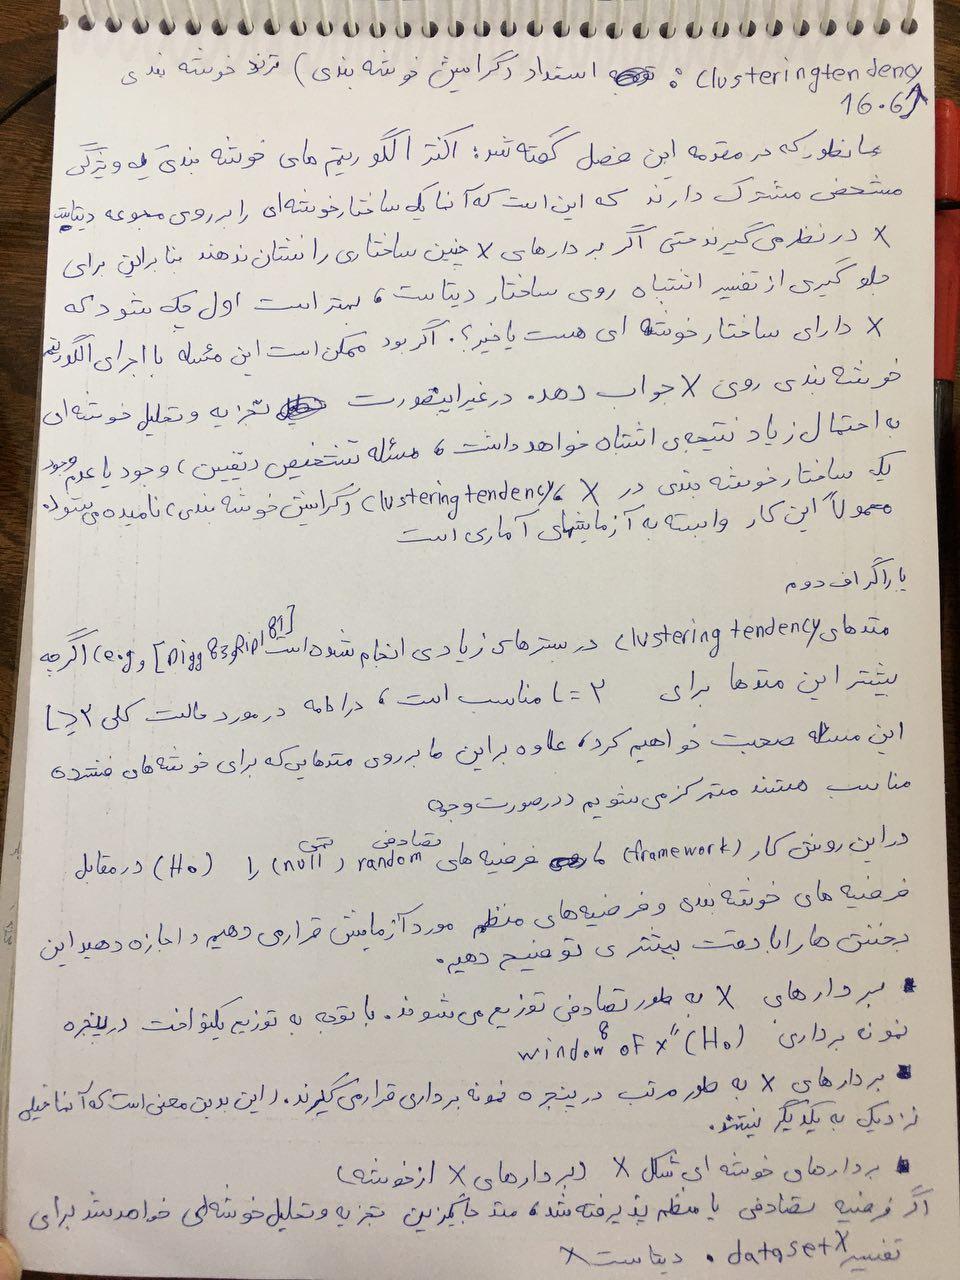 Clustering tendency : استعداد (گرایش خوشه بندی) ترند خوشه بندی
16.6
همانطور که در مقدمه این فصل گفته شد؛ اکثر الگوریتم های خوشه بندی یه ویژگی
مشخص مشترک دارند که این است که آنها یک ساختار خوشه‌ای را بر روی مجموعه دیتاست
X در نظر می گیرند حتی اگر بردارهای X چنین ساختاری را نشان ندهند بنابراین برای
جلوگیری از تفسیر اشتباه روی ساختار دیتاست، بهتر است اول چک شود که
X دارای ساختار خوشه ای هست یا خیر؟. اگر بود ممکن است این مسئله با اجرای الگوریتم
خوشه بندی روی X جواب دهد. در غیر اینصورت تجزیه و تحلیل خوشه‌ای
به احتمال زیاد نتیجه‌ی اشتباه خواهد داشت، مسئله تشخیص (تعیین) وجود یا عدم وجود
یک ساختار خوشه بندی در X، Clustering tendency (گرایش خوشه بندی) نامیده می شود.
معمولاً این کار وابسته به آزمایشهای آماری است
پاراگراف دوم
متدهای Clustering tendency در بسترهای زیادی انجام شده است (e.g, [Digg 83, Ripl 81] اگرچه
بیشتر این متدها برای L = ۲ مناسب است، در ادامه در مورد حالت کلی L ≥ ۲
این مسئله صحبت خواهیم کرد، علاوه بر این ما بر روی متدهایی که برای خوشه های فشرده
مناسب هستند متمرکز می شویم (در صورت وجود
در این روش کار (framework) ما فرضیه های random تصادفی (null) تهی را (H₀) در مقابل
فرضیه های خوشه بندی و فرضیه های منظم مورد آزمایش قرار می دهیم و اجازه دهید این
بخش ها را با دقت بیشتری توضیح دهیم.
• بردارهای X به طور تصادفی توزیع می شوند. با توجه به توزیع یکنواخت در پنجره
نمونه برداری window of X" (H₀)
• بردارهای X به طور مرتب در پنجره نمونه برداری قرار می گیرند. (این بدین معنی است که آنها خیلی
نزدیک به یکدیگر نیستند.
• بردارهای خوشه ای شکل X (بردارهای X از خوشه)
اگر فرضیه تصادفی یا منظم پذیرفته شد، متد جایگزین تجزیه و تحلیل خوشه‌ای خواهد شد برای
تفسیر dataset X . دیتاست X